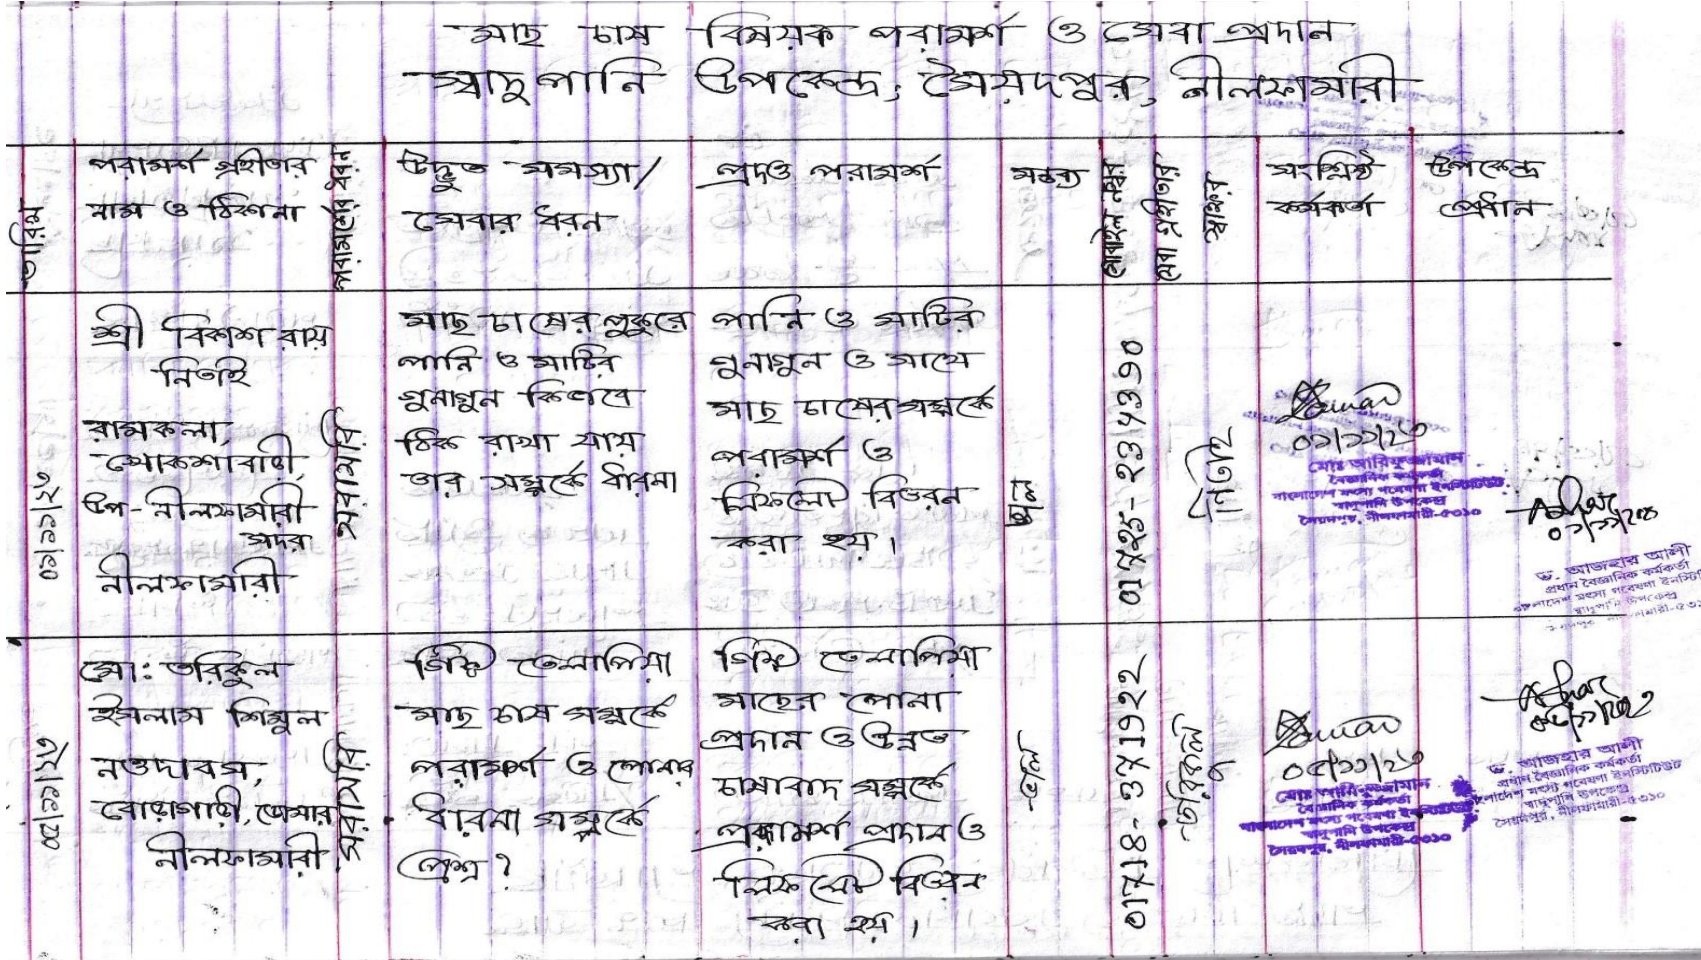 মাছ চাষ বিষয়ক পরামর্শ ও সেবা প্রদান
স্বাদুপানি উপকেন্দ্র, সৈয়দপুর, নীলফামারী
তারিখ
পরামর্শ গ্রহীতার
নাম ও ঠিকানা
পরামর্শের ধরন
উদ্ভুত সমস্যা/
সেবার ধরন
প্রদত্ত পরামর্শ
মন্তব্য
মোবাইল নম্বর
সেবা গ্রহীতার
স্বাক্ষর
সংশ্লিষ্ট
কর্মকর্তা
উপকেন্দ্র
প্রধান
০১/১১/২৩
শ্রী বিকাশ রায়
নিতাই
রামকলা,
খোকশাবাড়ী,
উপ-নীলফামারী
সদর
নীলফামারী
সরাসরি
মাছ চাষের পুকুরে
পানি ও মাটির
গুনাগুন কিভাবে
ঠিক রাখা যায়
তার সম্পর্কে ধারনা
পানি ও মাটির
গুনাগুন ও সাথে
মাছ চাষের সম্পর্কে
পরামর্শ ও
লিফলেট বিতরন
করা হয়।
01725-2343390
নিতাই
০১/১১/২৩
মোঃ আরিফুজ্জামান
বৈজ্ঞানিক কর্মকর্তা
বাংলাদেশ মৎস্য গবেষণা ইনস্টিটিউট
স্বাদুপানি উপকেন্দ্র
সৈয়দপুর, নীলফামারী-৫৩১০
ড. আজহার আলী
প্রধান বৈজ্ঞানিক কর্মকর্তা
মৎস্য গবেষণা
স্বাদুপানি উপকেন্দ্র
০৫/১১/২৩
মো: তরিকুল
ইসলাম শিমুল
বোড়াগাড়ী, ডোমার
নীলফামারী
সরাসরি
গিফ্ট তেলাপিয়া
মাছ চাষ সম্পর্কে
পরামর্শ ও পোনার
ধারনা সম্পর্কে
প্রশ্ন?
গিফ্ট তেলাপিয়া
মাছের পোনা
প্রদান ও উন্নত
চাষাবাদ সম্পর্কে
পরামর্শ প্রদান ও
লিফলেট বিতরন
করা হয়।
ভাল
01718-371922
তরিকুল
০৫/১১/২৩
মোঃ আরিফুজ্জামান
বৈজ্ঞানিক কর্মকর্তা
বাংলাদেশ মৎস্য গবেষণা ইনস্টিটিউট
স্বাদুপানি উপকেন্দ্র
সৈয়দপুর, নীলফামারী-৫৩১০
ড. আজহার আলী
প্রধান বৈজ্ঞানিক কর্মকর্তা
বাংলাদেশ মৎস্য গবেষণা ইনস্টিটিউট
স্বাদুপানি উপকেন্দ্র
সৈয়দপুর, নীলফামারী-৫৩১০